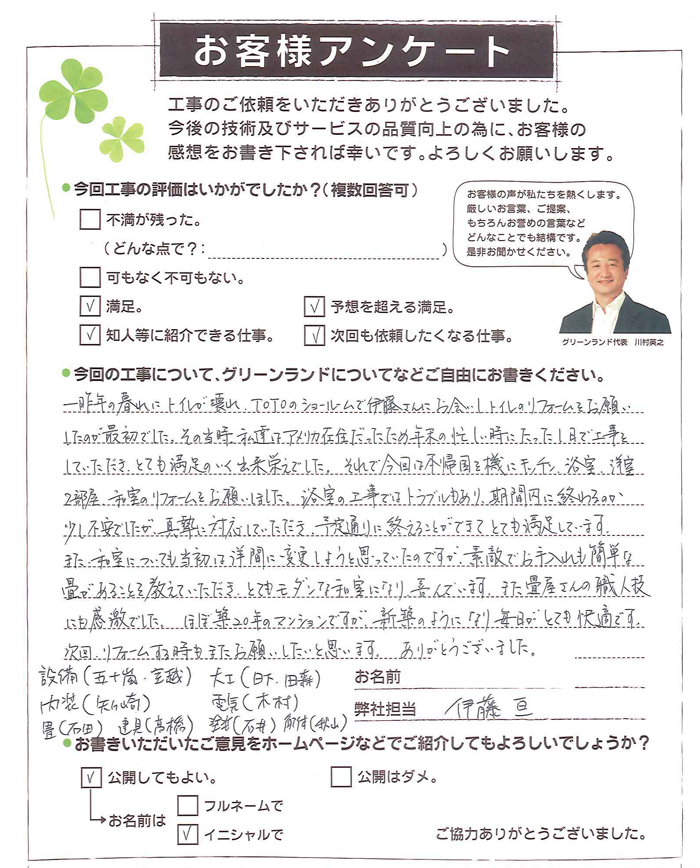 お客様アンケート
工事のご依頼をいただきありがとうございました。
今後の技術及びサービスの品質向上の為に、お客様の
感想をお書き下されば幸いです。よろしくお願いします。
●今回工事の評価はいかがでしたか？（複数回答可）
不満が残った。
（どんな点で？：　　　）
可もなく不可もない。
✓ 満足。
✓ 予想を超える満足。
✓ 知人等に紹介できる仕事。
✓ 次回も依頼したくなる仕事。
お客様の声が私たちを熱くします。
厳しいお言葉、ご提案、
もちろんお誉めの言葉など
どんなことでも結構です。
是非お聞かせください。
グリーンランド代表　川村英之
●今回の工事について、グリーンランドについてなどご自由にお書きください。
一昨年の暮れにトイレが壊れ、TOTOのショールームで伊藤さんにお会いしトイレのリフォームをお願い
したのが最初でした。その当時、私達はアメリカ在住だったため年末の忙しい時にたった1日で工事を
していただき、とても満足のいく出来栄えでした。それで今回は本帰国を機にキッチン、浴室、洋室
2部屋、和室のリフォームをお願いしました。浴室の工事ではトラブルもあり、期間内に終わるのか
少し不安でしたが、真摯に対応していただき、予定通りに終えることができてとても満足しています。
また、和室についても当初は洋間に変更しようと思っていたのですが、素敵でお手入れも簡単な
畳があることを教えていただき、とてもモダンな和室になり、喜んでいます。また畳屋さんの職人技
にも感激でした。ほぼ築20年のマンションですが、新築のようになり毎日がとても快適です。
次回、リフォームする時もまたお願いしたいと思います。ありがとうございました。
設備（五十嵐・宮越）　大工（日下・田森）
内装（矢ヶ崎）　電気（木村）
畳（石田）　建具（高橋）　（石井）　（秋山）
お名前
弊社担当　伊藤 亘
●お書きいただいたご意見をホームページなどでご紹介してもよろしいでしょうか？
✓ 公開してもよい。
公開はダメ。
お名前は
フルネームで
✓ イニシャルで
ご協力ありがとうございました。